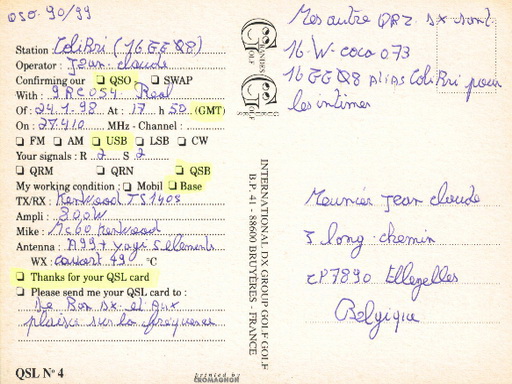 QSO. 90/99
Station ColiBri (16 EE Q8)
Operator : Jean - claude
Confirming our ❏ QSO ❏ SWAP
With : 9 RC054 Real
Of : 24.1-98 At : 17 h 50 (GMT)
On : 27.410 MHz - Channel :
❏ FM ❏ AM ❏ USB ❏ LSB ❏ CW
Your signals : R 2 S 2
❏ QRM ❏ QRN ❏ QSB
My working condition : ❏ Mobil ❏ Base
TX/RX : Kenwood TS140S
Ampli : 800W
Mike : Mc60 Kenwood
Antenna : A99 + yagi 5 elements
WX : couvert 49 °C
❏ Thanks for your QSL card
❏ Please send me your QSL card to :
De Bon Dx et Aux
plaisir sur la fréquence
QSL N° 4
GRANDES
GOLF
GOLF
INTERNATIONAL DX GROUP GOLF GOLF
B.P. 41 - 88600 BRUYÈRES - FRANCE
printed by
CROMAGNON
Mes autre QRZ DX sont
16-W-coco 073
16 EE Q8 Alias ColiBri pour
les intimes
Meunier Jean claude
5 long chemin
CP7890 Ellezelles
Belgique